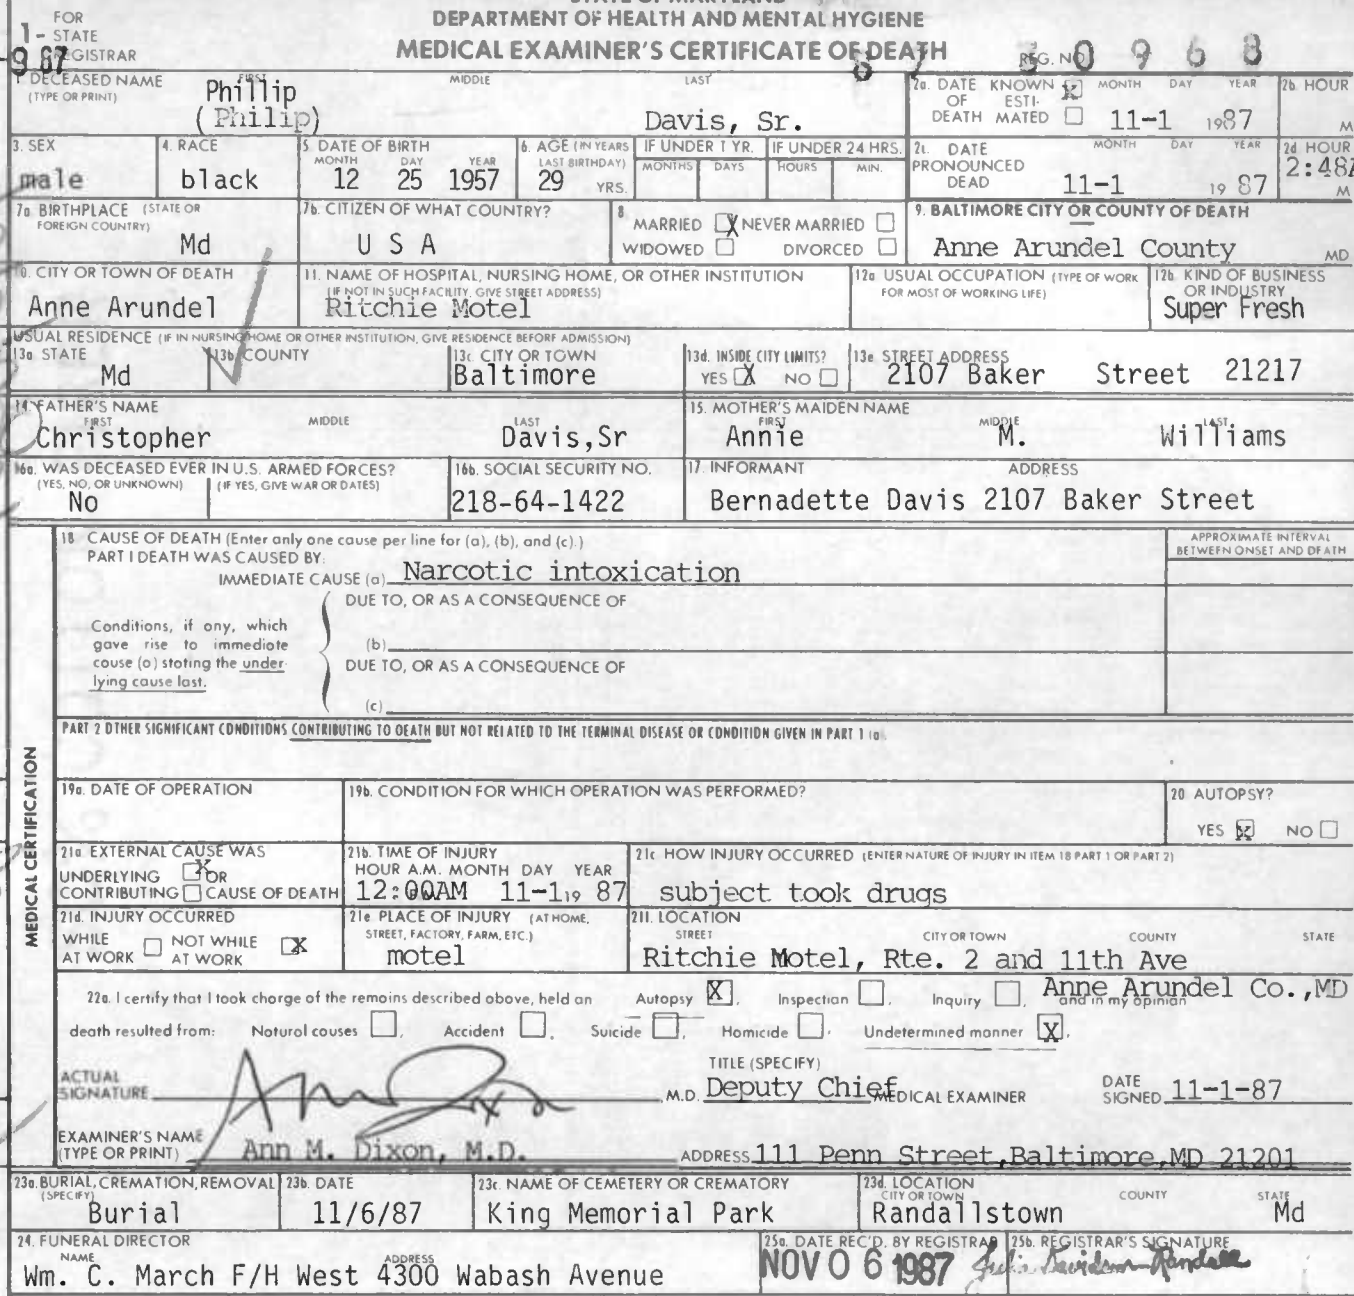 FOR
1- STATE
REGISTRAR
9 87
DEPARTMENT OF HEALTH AND MENTAL HYGIENE
MEDICAL EXAMINER'S CERTIFICATE OF DEATH
REG. NO 30968
DECEASED NAME FIRST MIDDLE LAST
(TYPE OR PRINT)
Phillip
(Philip) Davis, Sr.
2a. DATE KNOWN X MONTH DAY YEAR
OF ESTI-
DEATH MATED 11-1 1987
2b. HOUR
M
3. SEX
male
4. RACE
black
5. DATE OF BIRTH
MONTH DAY YEAR
12 25 1957
6. AGE (IN YEARS
LAST BIRTHDAY)
29 YRS.
IF UNDER 1 YR.
MONTHS DAYS
IF UNDER 24 HRS.
HOURS MIN.
2c. DATE MONTH DAY YEAR
PRONOUNCED
DEAD 11-1 19 87
2d HOUR
2:48A
M
7a BIRTHPLACE (STATE OR
FOREIGN COUNTRY)
Md
7b. CITIZEN OF WHAT COUNTRY?
U S A
8
MARRIED X NEVER MARRIED
WIDOWED DIVORCED
9. BALTIMORE CITY OR COUNTY OF DEATH
Anne Arundel County MD
0. CITY OR TOWN OF DEATH
Anne Arundel
11. NAME OF HOSPITAL, NURSING HOME, OR OTHER INSTITUTION
(IF NOT IN SUCH FACILITY, GIVE STREET ADDRESS)
Ritchie Motel
12a USUAL OCCUPATION (TYPE OF WORK
FOR MOST OF WORKING LIFE)
12b. KIND OF BUSINESS
OR INDUSTRY
Super Fresh
USUAL RESIDENCE (IF IN NURSING HOME OR OTHER INSTITUTION, GIVE RESIDENCE BEFORE ADMISSION)
13a STATE
Md
13b. COUNTY
13c. CITY OR TOWN
Baltimore
13d. INSIDE CITY LIMITS?
YES X NO
13e STREET ADDRESS
2107 Baker Street 21217
14. FATHER'S NAME
FIRST MIDDLE LAST
Christopher Davis,Sr
15. MOTHER'S MAIDEN NAME
FIRST MIDDLE LAST
Annie M. Williams
16a. WAS DECEASED EVER IN U.S. ARMED FORCES?
(YES, NO, OR UNKNOWN) (IF YES, GIVE WAR OR DATES)
No
16b. SOCIAL SECURITY NO.
218-64-1422
17. INFORMANT ADDRESS
Bernadette Davis 2107 Baker Street
MEDICAL CERTIFICATION
18 CAUSE OF DEATH (Enter only one cause per line for (a), (b), and (c).)
PART I DEATH WAS CAUSED BY:
IMMEDIATE CAUSE (a) Narcotic intoxication
APPROXIMATE INTERVAL
BETWEEN ONSET AND DEATH
DUE TO, OR AS A CONSEQUENCE OF
Conditions, if any, which
gave rise to immediate
cause (a) stating the under-
lying cause last.
(b)
DUE TO, OR AS A CONSEQUENCE OF
(c)
PART 2 OTHER SIGNIFICANT CONDITIONS CONTRIBUTING TO DEATH BUT NOT RELATED TO THE TERMINAL DISEASE OR CONDITION GIVEN IN PART 1 (a).
19a. DATE OF OPERATION
19b. CONDITION FOR WHICH OPERATION WAS PERFORMED?
20 AUTOPSY?
YES X NO
21a EXTERNAL CAUSE WAS
UNDERLYING X OR
CONTRIBUTING CAUSE OF DEATH
21b. TIME OF INJURY
HOUR A.M. MONTH DAY YEAR
12:00AM 11-1 19 87
21c HOW INJURY OCCURRED (ENTER NATURE OF INJURY IN ITEM 18 PART 1 OR PART 2)
subject took drugs
21d. INJURY OCCURRED
WHILE NOT WHILE X
AT WORK AT WORK
21e PLACE OF INJURY (AT HOME,
STREET, FACTORY, FARM, ETC.)
motel
21f. LOCATION
STREET CITY OR TOWN COUNTY STATE
Ritchie Motel, Rte. 2 and 11th Ave
Anne Arundel Co.,MD
22a. I certify that I took charge of the remains described above, held an Autopsy X, Inspection , Inquiry , and in my opinion
death resulted from: Natural causes , Accident , Suicide , Homicide , Undetermined manner X.
ACTUAL
SIGNATURE
TITLE (SPECIFY)
M.D. Deputy Chief MEDICAL EXAMINER
DATE
SIGNED 11-1-87
EXAMINER'S NAME
(TYPE OR PRINT) Ann M. Dixon, M.D.
ADDRESS 111 Penn Street,Baltimore,MD 21201
23a. BURIAL, CREMATION, REMOVAL
(SPECIFY)
Burial
23b. DATE
11/6/87
23c. NAME OF CEMETERY OR CREMATORY
King Memorial Park
23d. LOCATION
CITY OR TOWN COUNTY STATE
Randallstown Md
24. FUNERAL DIRECTOR
NAME ADDRESS
Wm. C. March F/H West 4300 Wabash Avenue
25a. DATE REC'D. BY REGISTRAR
NOV 06 1987
25b. REGISTRAR'S SIGNATURE
Julia Davidson-Randall